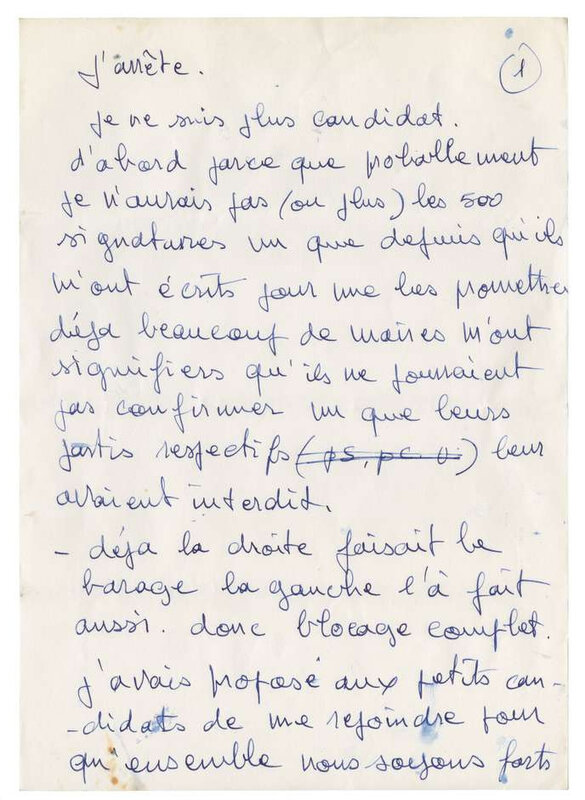 1
J'arrête.
Je ne suis plus candidat.
d'abord parce que probablement
je n'aurais pas (ou plus) les 500
signatures vu que depuis qu'ils
m'ont écrits pour me les promettre
déja beaucoup de maires m'ont
signifiers qu'ils ne pourraient
pas confirmer vu que leurs
partis respectifs (PS, PC) leur
avaient interdit.
- déja la droite faisait le
barage la gauche l'à fait
aussi. donc blocage complet.
J'avais proposé aux petits can-
-didats de me rejoindre pour
qu'ensemble nous soyons forts